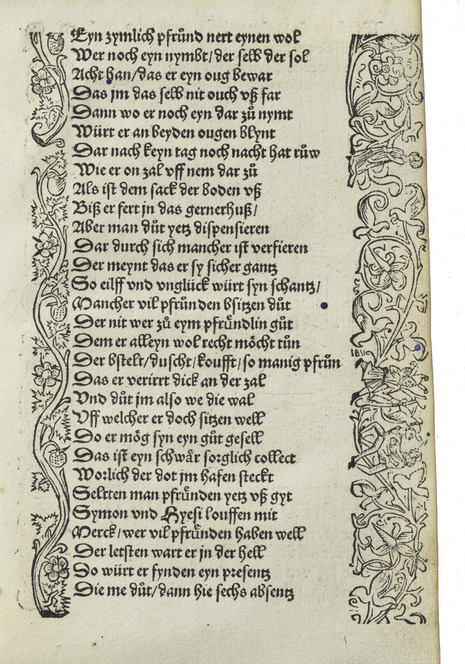 Eyn zymlich pfruͦnd nert eynen wol
Wer noch eyn nymbt/der selb der sol
Acht han/das er eyn oug bewar
Das jm das selb nit ouch vß far
Dann wo er noch eyn dar zuͦ nymt
Würt er an beyden ougen blynt
Dar nach keyn tag noch nacht hat ruͦw
Wie er on zal vff nem dar zuͦ
Als ist dem sack der boden vß
Biß er fert jn das gernerhuß/
Aber man duͦt yetz dispensieren
Dar durch sich mancher ist verfieren
Der meynt das er sy sicher gantz
So eilff vnd vnglück würt syn schantz/
Mancher vil pfruͦnden bsitzen duͦt
Der nit wer zuͦ eym pfruͤndlin guͦt
Dem er alleyn wol recht moͤcht tuͦn
Der bstelt/duscht/koufft/so manig pfruͦn
Das er verirrt dick an der zal
Vnd duͦt jm also we die wal
Vff welcher er doch sitzen well
Do er moͤg syn eyn guͦt gesell
Das ist eyn schwaͤr sorglich collect
Worlich der dot jm hafen steckt
Seltten man pfruͦnden yetz vß gyt
Symon vnd Hyesi louffen mit
Merck/wer vil pfruͦnden haben well
Der letsten wart er jn der hell
So würt er fynden eyn presentz
Die me duͦt/dann hie sechs absentz